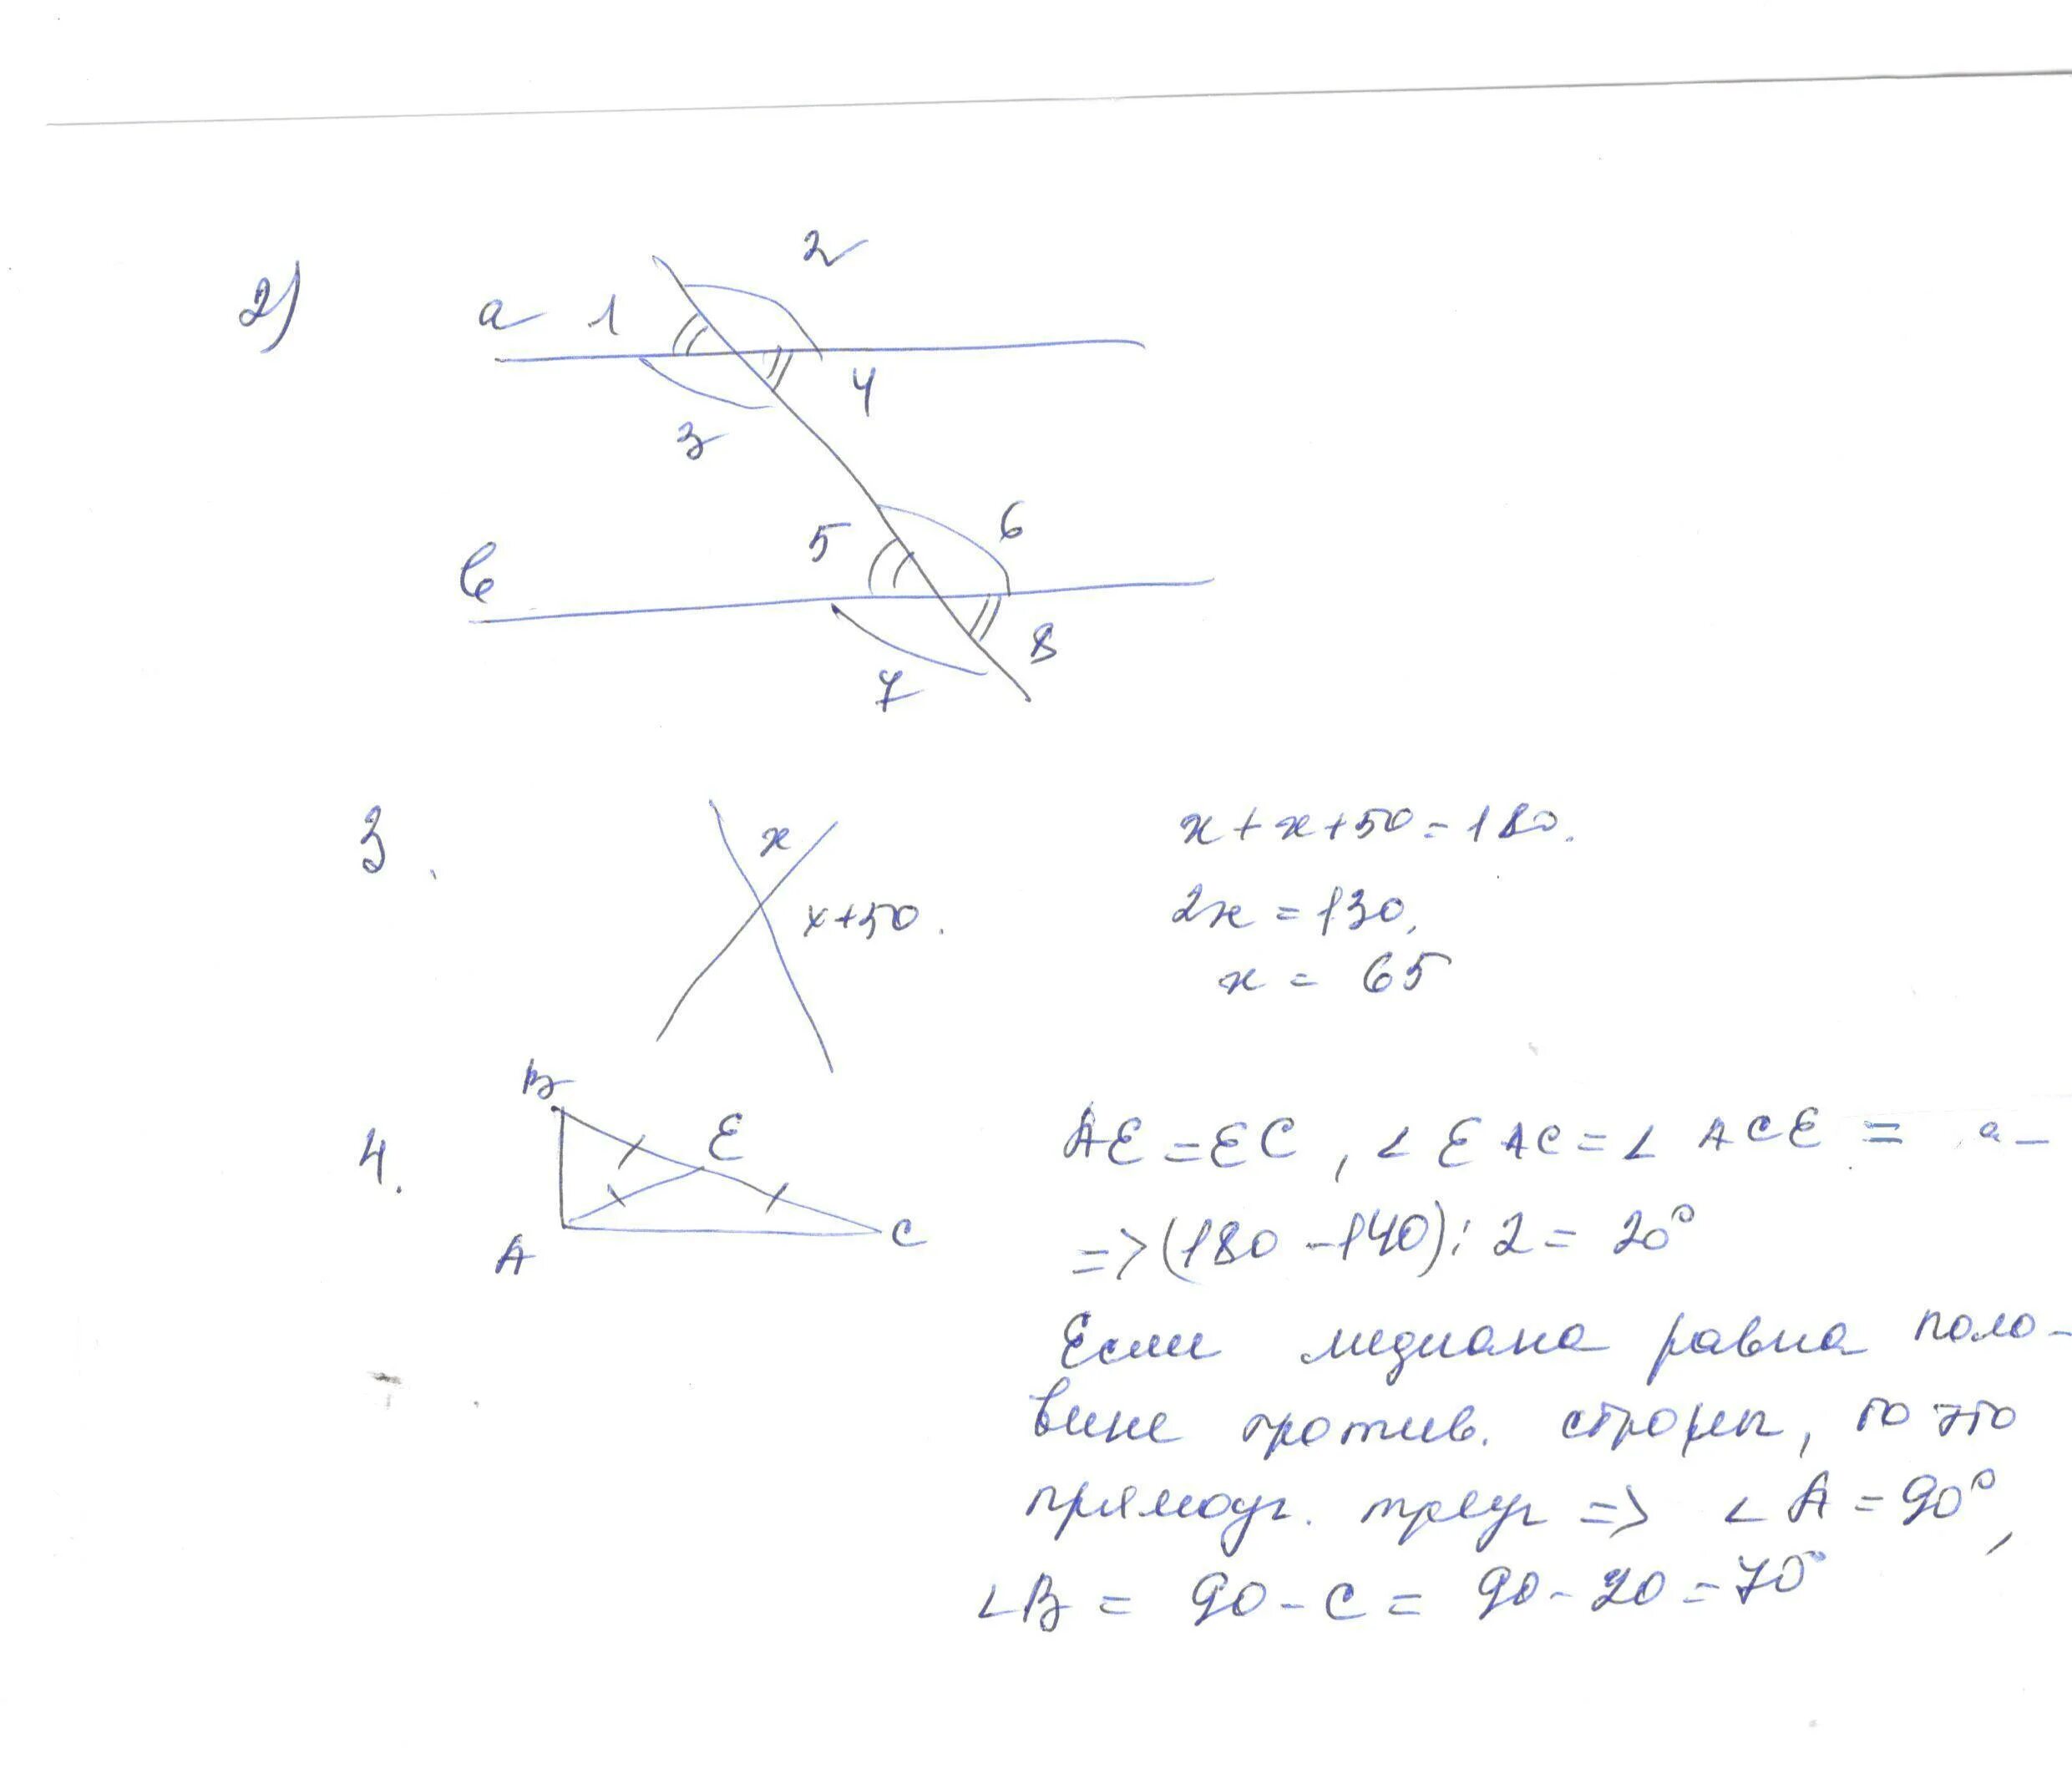 2)
2
a 1
4
3
6
5
в
8
7
3.
x
x+50.
x+x+50=180.
2x=130,
x = 65
4.
B
E
A
C
AE=EC, ∠EAC=∠ACE =
=>(180-140):2= 20°
Если медиана равна поло-
вине против. стороны, то это
прямоуг. треуг => ∠A=90°,
∠B = 90-C = 90-20=70°